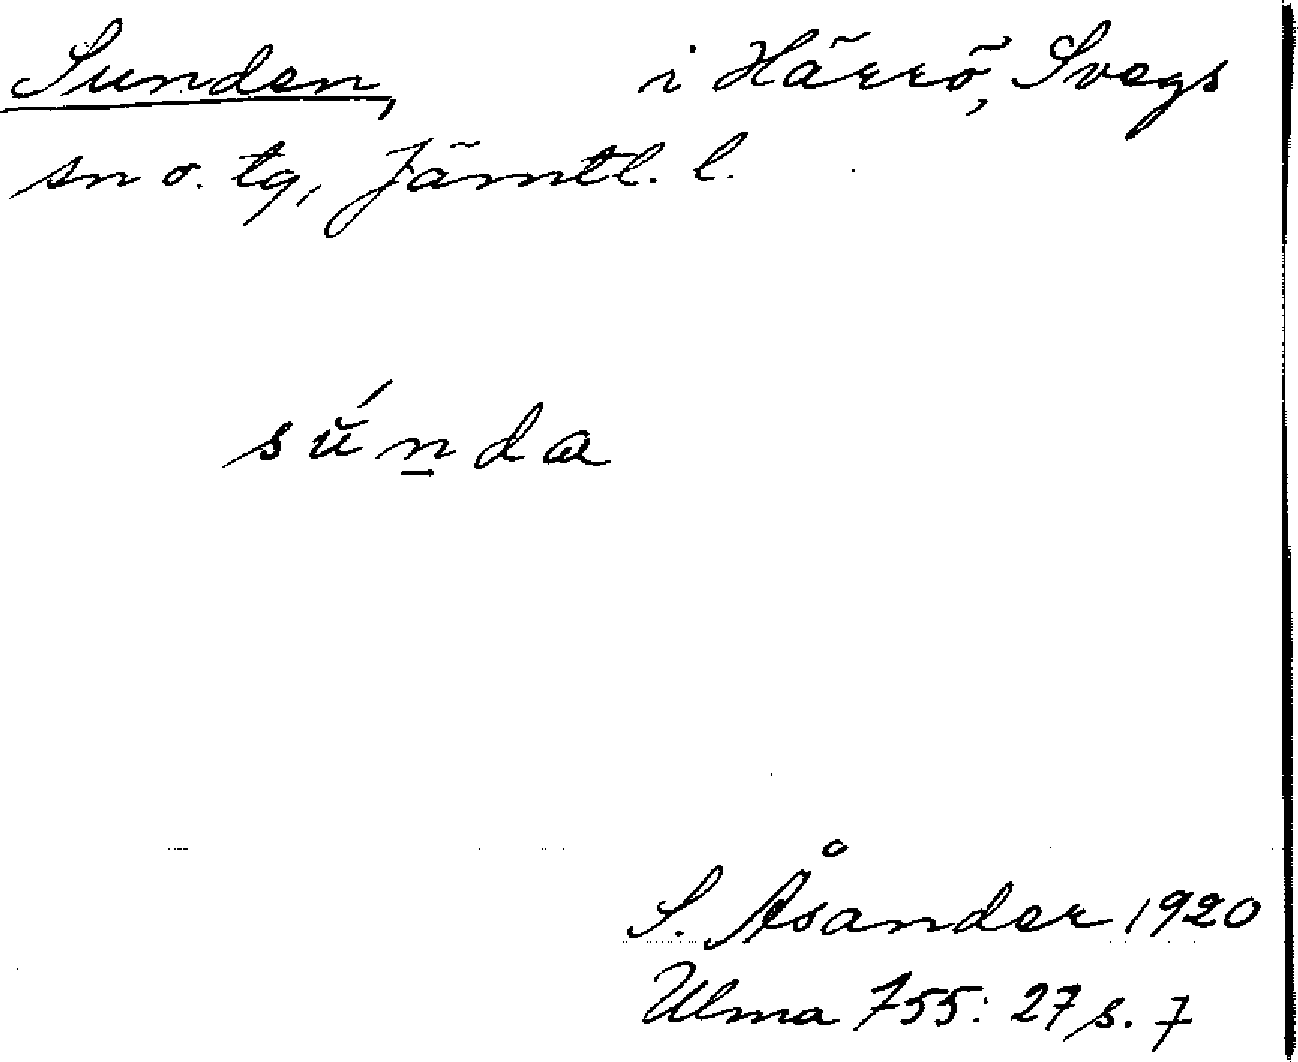 Sunden, i Härrö, Svegs
sn o. tg, Jämtl. l.
sŭ́n̲da
S. Åsander 1920
Ulma 755: 27 s. 7